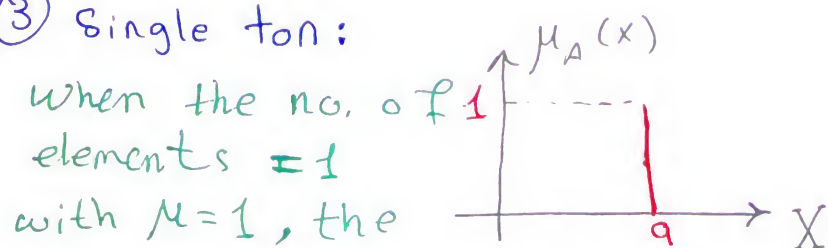 ③ Single ton:
When the no. of
elements = 1
with μ=1, the
μ_A (x)
1
a
X